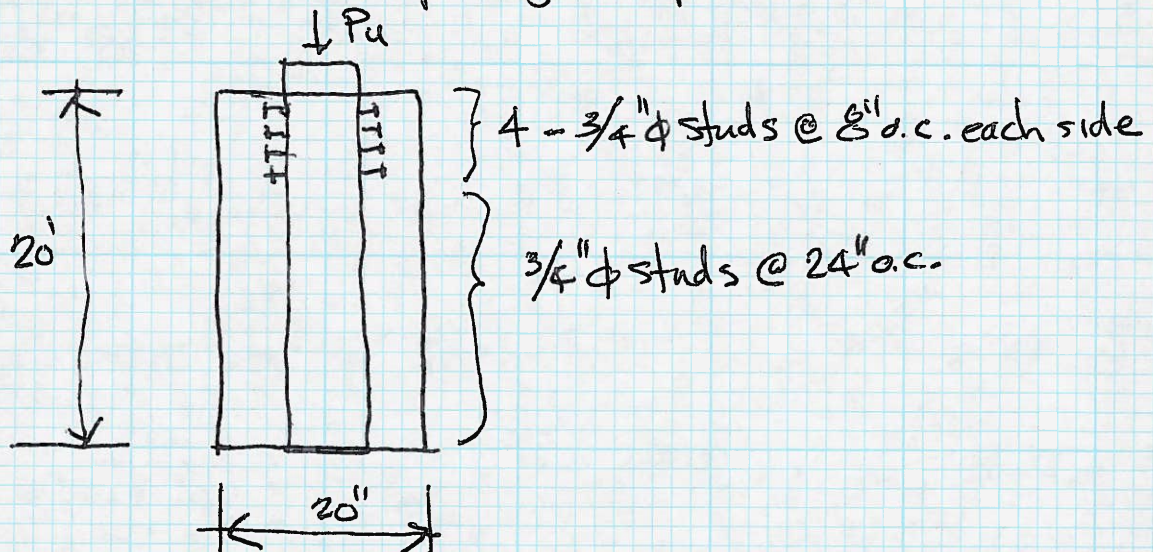 ↓ Pu
4 - 3/4"ϕ studs @ 8" o.c. each side
20'
3/4"ϕ studs @ 24" o.c.
20"